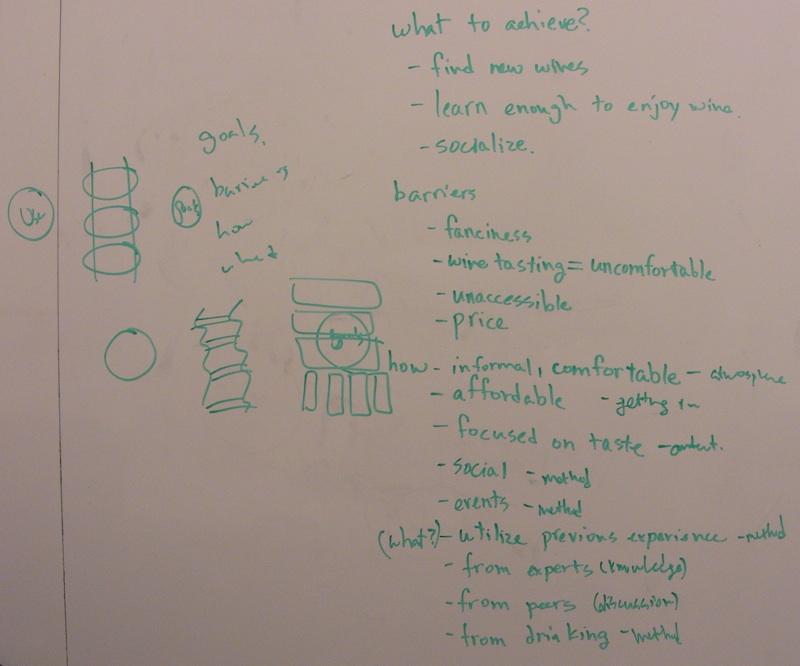 what to achieve?
- find new wines
- learn enough to enjoy wine.
- socialize.
goals.
barriers
how
what
User
goals
barriers
- fanciness
- wine tasting = uncomfortable
- unaccessible
- price
how - informal, comfortable - atmosphere
- affordable - getting in
- focused on taste - content.
- social - method
- events - method
(what?) - utilize previous experience - method
- from experts (knowledge)
- from peers (discussion)
- from drinking - method